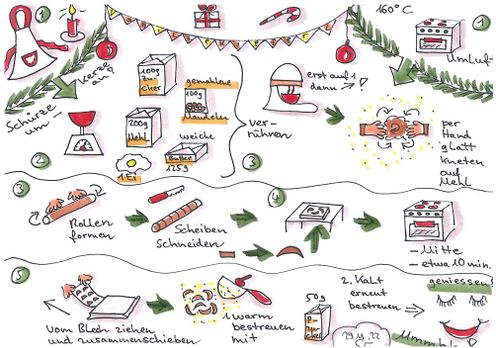 1
160°C
1
Umluft
Kerze
an?
Schürze
um
100g
Zucker
gemahlene
100g
Mandeln
200g
Mehl
weiche
Butter
1 Ei
125g
2
ver-
rühren
3
erst auf 1
dann
!
per
Hand
glatt
kneten
auf
Mehl
3
Rollen
formen
Scheiben
Schneiden
4
- Mitte
- etwa 10 min.
5
vom Blech ziehen
und zusammenschieben
1. warm
bestreuen
mit
50g
2. Kalt
erneut
bestreuen
geniessen!